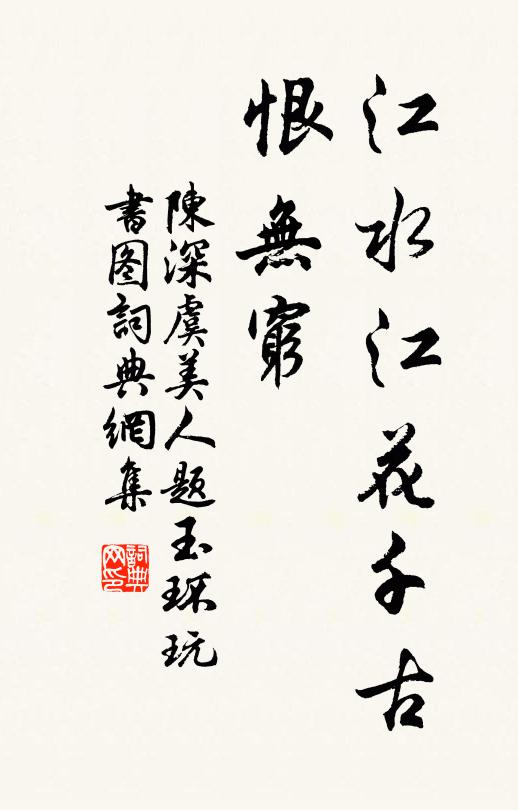 江水江花千古
恨無窮
陳深虞美人題玉環玩
書图詞典網集
詞典网印